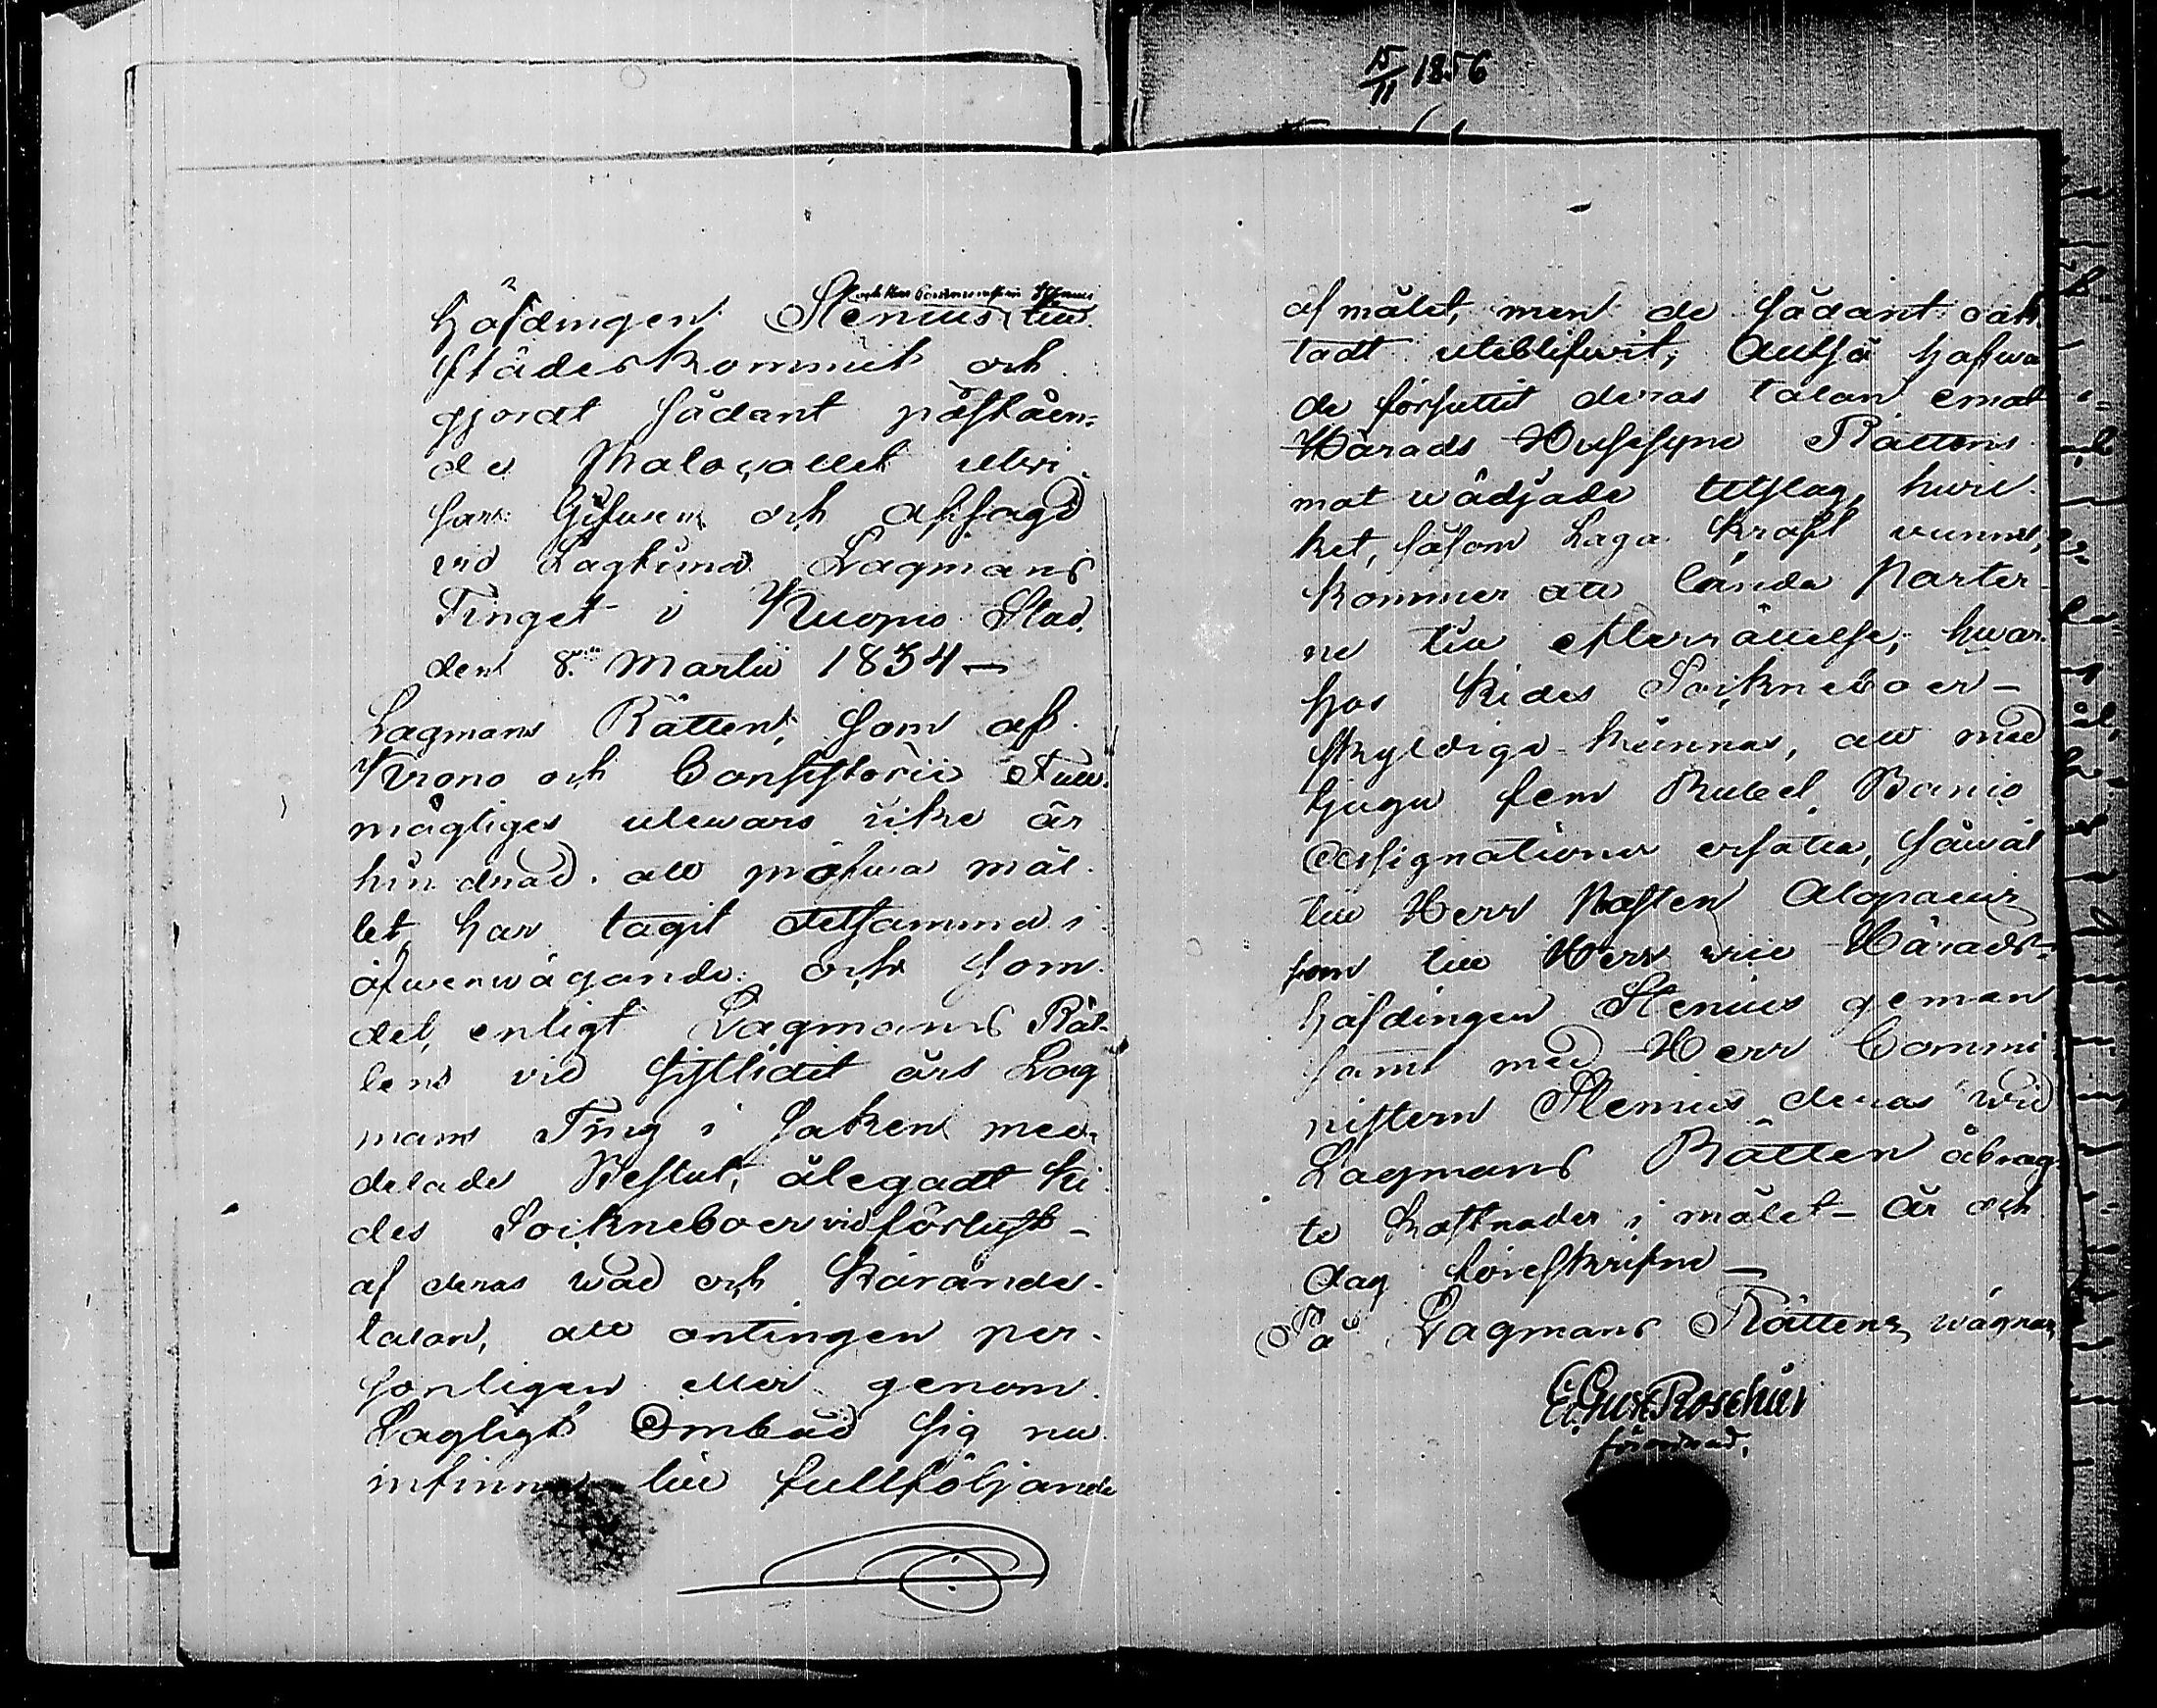 höfdingen Stenius till
och Herr Comministern Stenius
städes kommit och
gjordt sådant påståen-
de
vid Lagtima Lagmans
Tinget i Kuopio Stad
den 8de Martii 1834 —
Lagmans Rätten, som af
Krono och Consistorii Full-
mägtiges utewaro icke är
hindrad att pröfwa mål-
let, har tagit detsamma i
öfwerwägande: och som
det, enligt Lagmans Rät-
tens vid sistlidit års Lag
mans Ting i saken med-
delade Beslut, ålegadt Ki-
des Sockneboer vid förlust
af deras wad och kärande
talan, att antingen per-
sonligen eller genom
Lagligt Ombud sig nu
infinna till fullföljande
15/11 1856
af målet, men de sådant oak-
tadt uteblifwit; Altså hafwa
de försuttit deras talan emot
Härads Husesyns Rättens
mot wädjade utslag, hwil-
ket, såsom Laga kraft vunnet,
kommer att lända Parter-
ne till efterrättelse; hwar-
hos Kides Sockneboer
skyldige kännas, att med
tjugu fem Rubel Banco
Assignationer ersätta, såwäl
till Herr Pastor Alopaeus
som till Herr vice Härads-
höfdingen Stenius geman
samt med Herr Commi-
nistern Stenius deras wid
Lagmans Rätten åbrag-
te kostnader i målet — År och
dag föreskrifne —
På Lagmans Rättens wägnar
Roschier
förordnad.